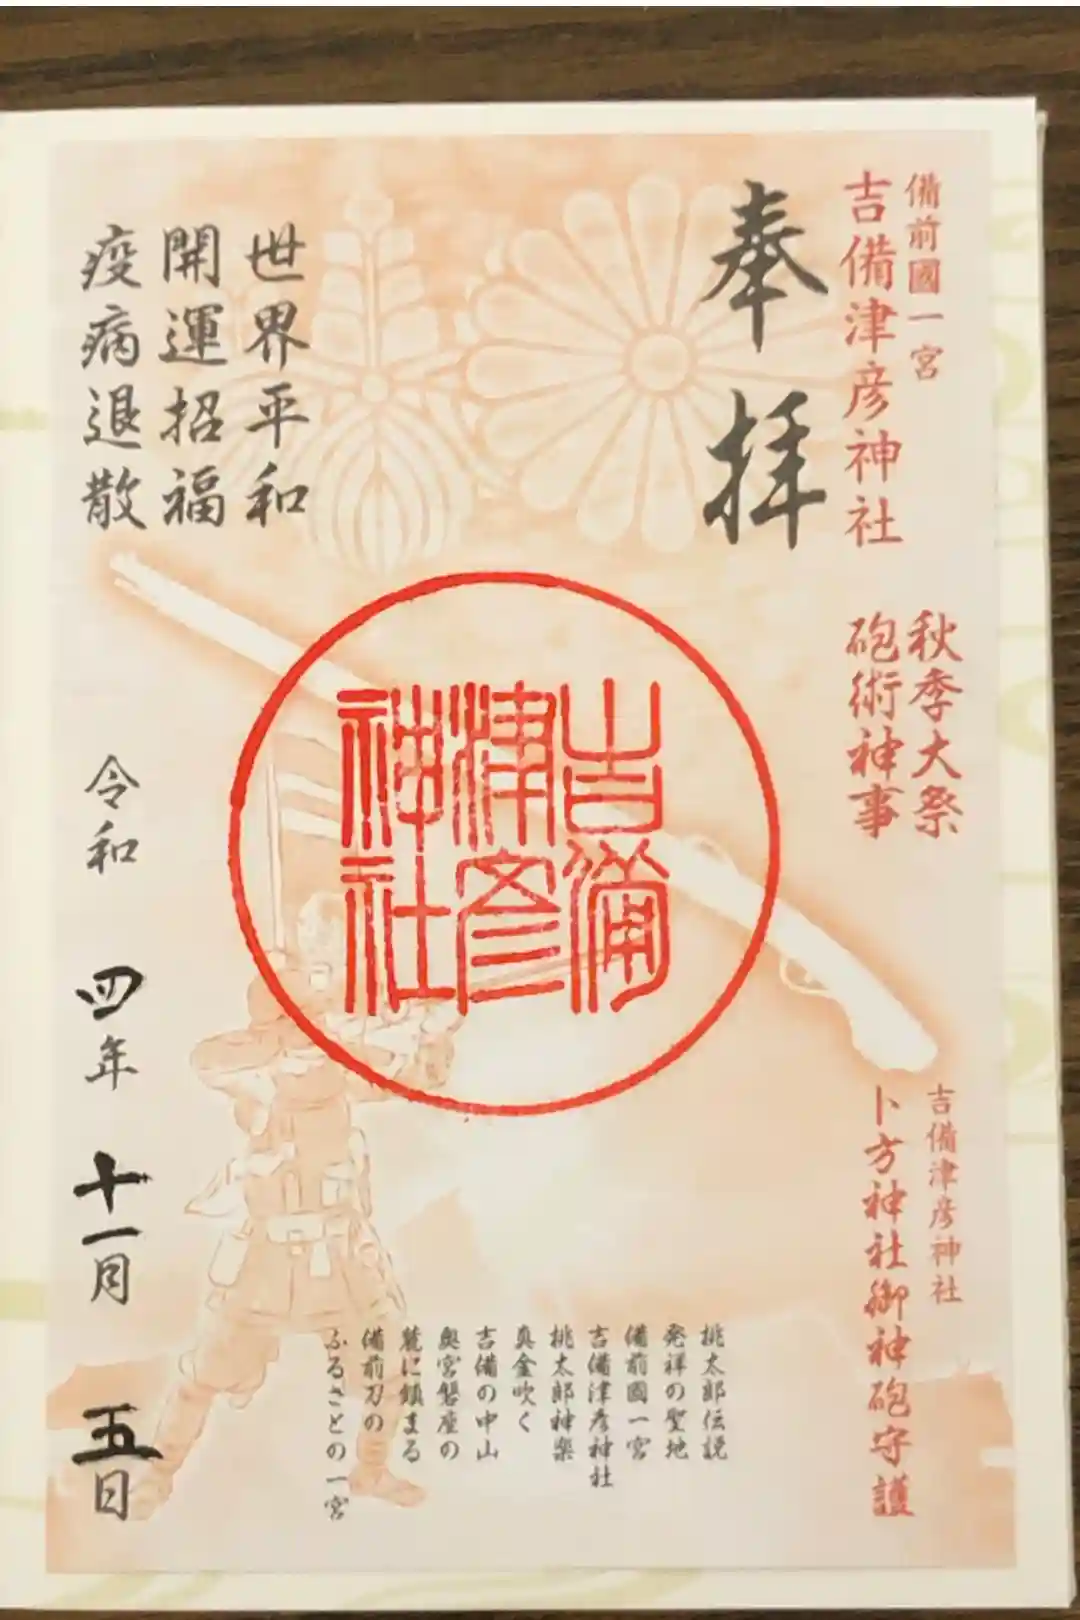 備前國一宮
吉備津彦神社
奉拝
秋季大祭
砲術神事
世界平和
開運招福
疫病退散
吉備
津彦
神社
吉備津彦神社
卜方神社御神砲守護
桃太郎伝説
発祥の聖地
備前國一宮
吉備津彦神社
桃太郎神楽
真金吹く
吉備の中山
奥宮磐座の
麓に鎮まる
備前刀の
ふるさとの一宮
令和 四年 十一月 五日